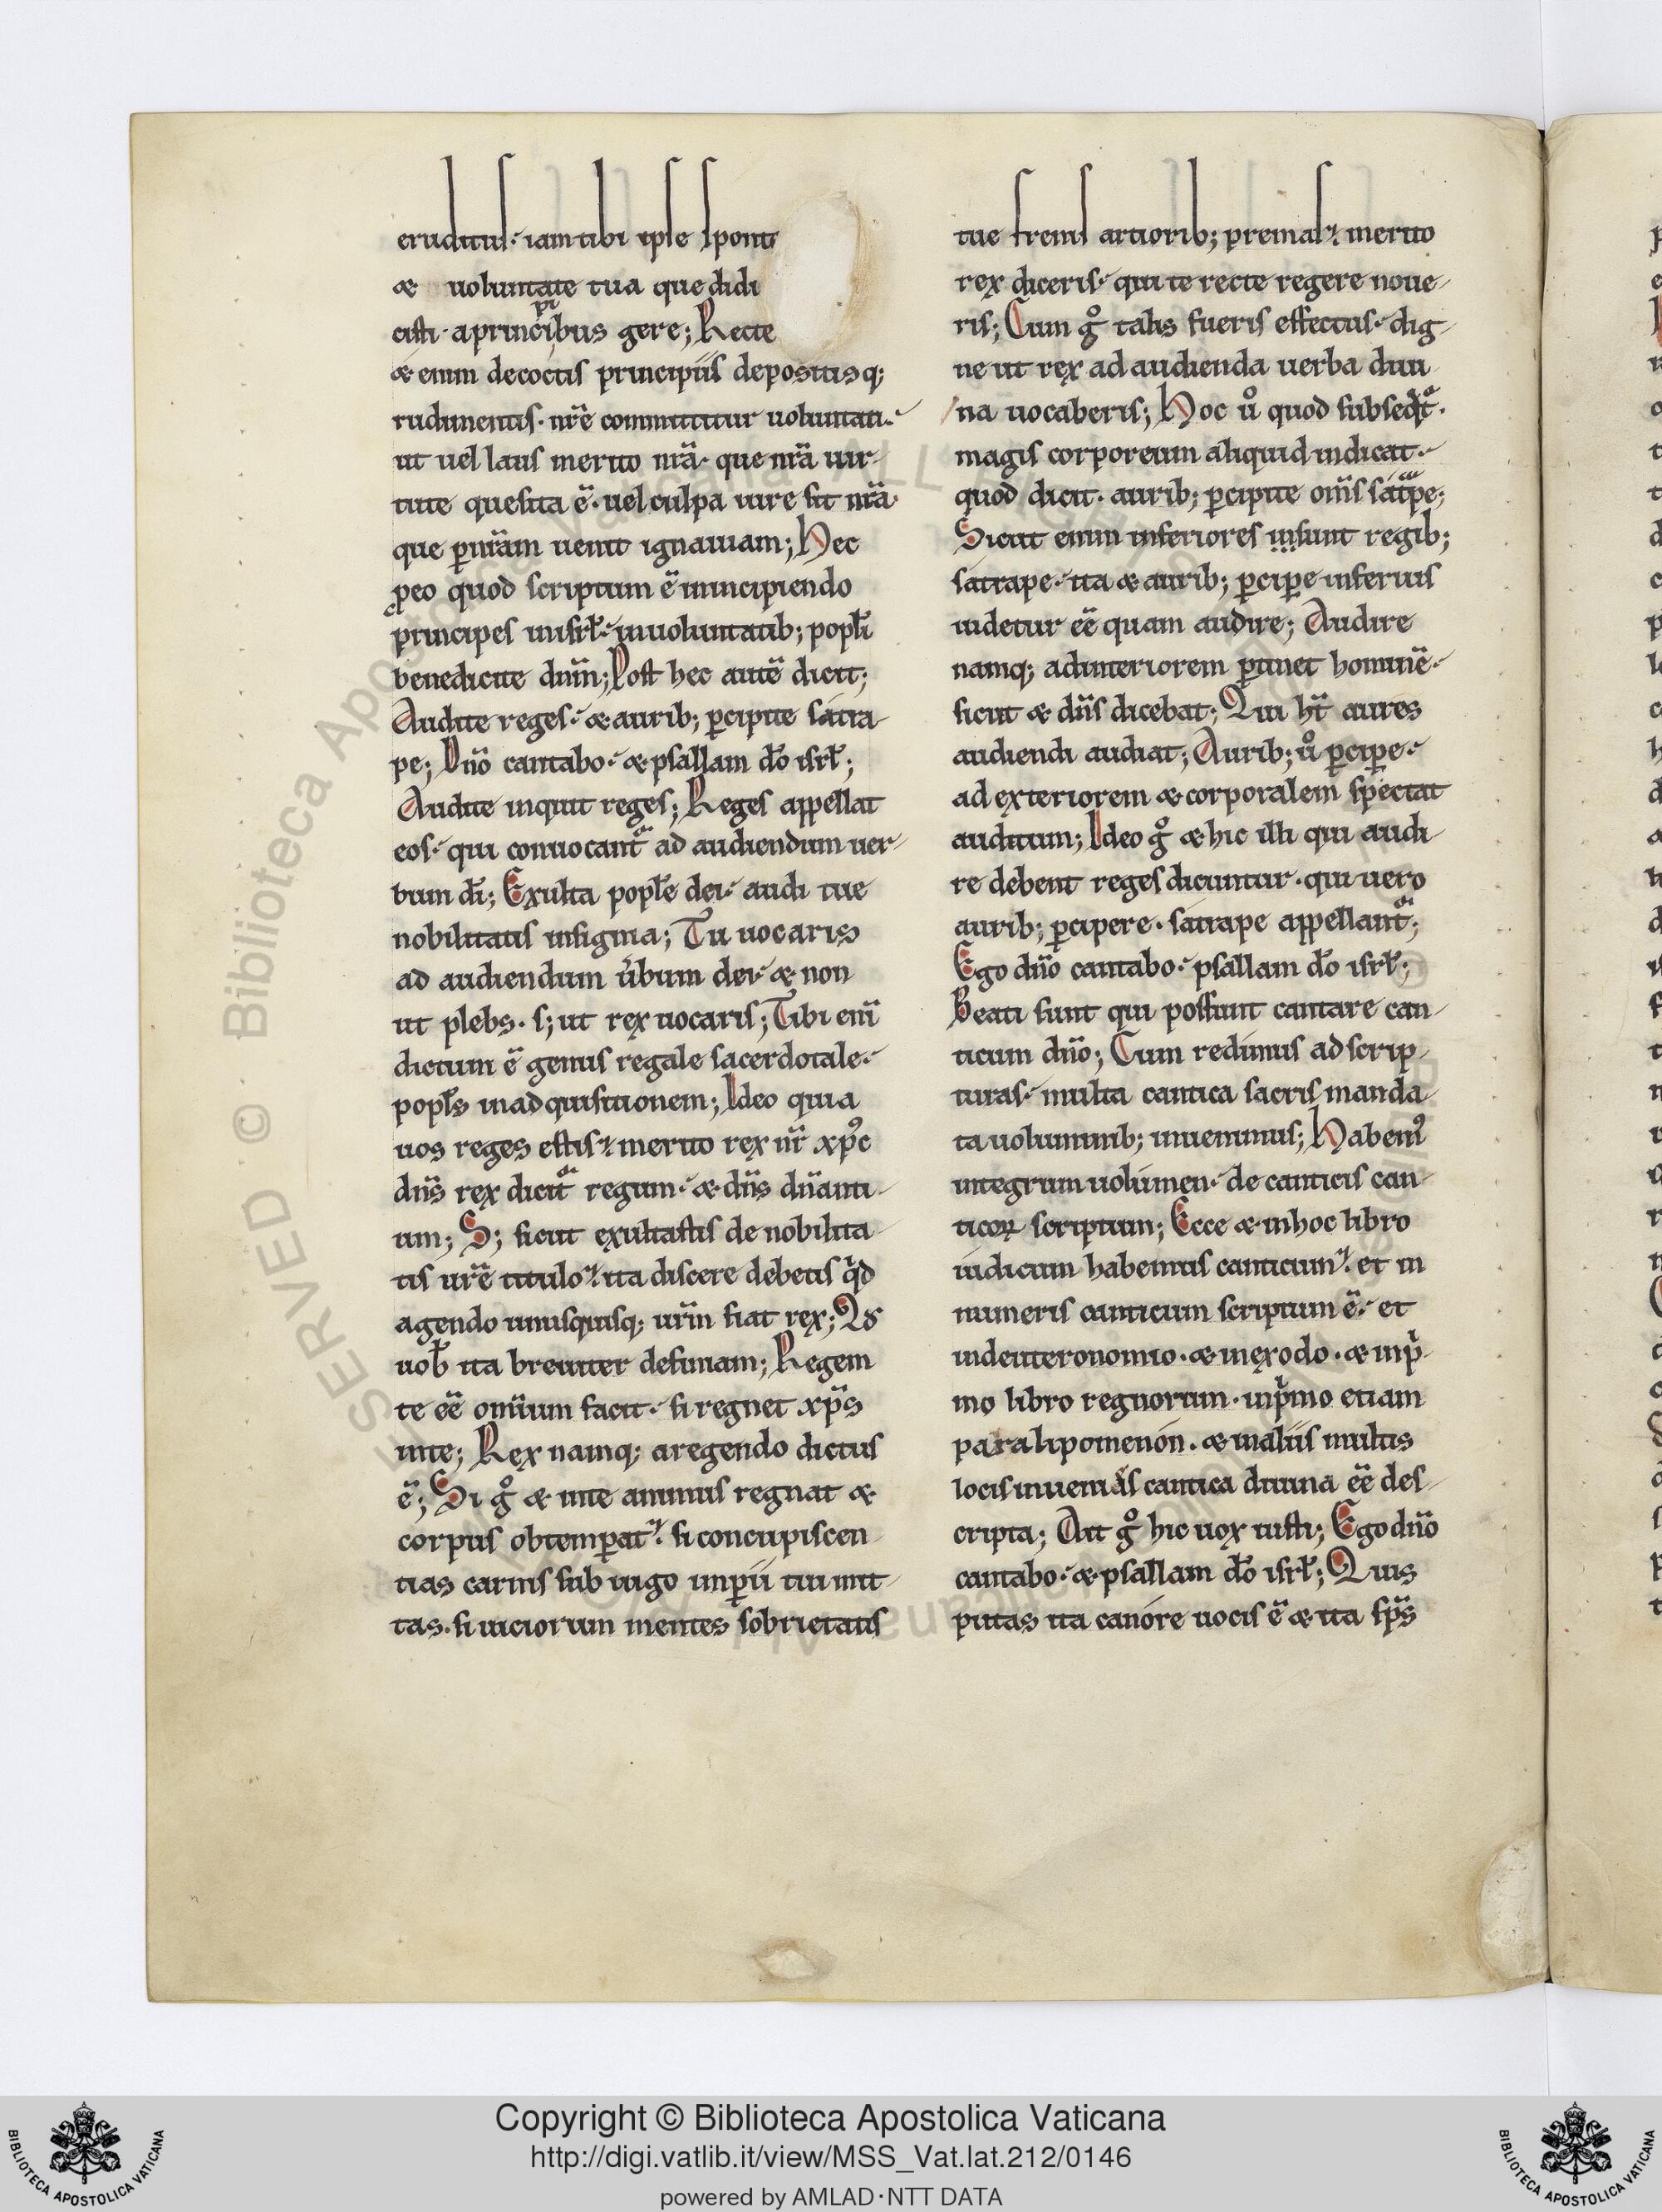 eruditus. iam tibi ipse sponti
& uoluntate tua que didi
cisti. a principibus gere; Recte
& enim decoctis principiis depositisq;
rudimentis. nr̄e committitur uoluntati.
ut uel laus merito nr̄a. que nr̄a uir-
tute quesita ē. uel culpa iure sit nr̄a.
que ꝑ nr̄am uenit ignauiam; Hec
ꝓ eo quod scriptum ē inincipiendo
principes inisrl̄. inuoluntatib; popl̄i
benedicite dn̄m; Post hec autē dicit;
Audite reges. & aurib; ꝑcipite satra-
pe; Dn̄o cantabo. & psallam do̅ isrl̄;
Audite inquit reges; Reges appellat
eos. qui conuocant᷑ ad audiendum uer-
bum di̅; Exulta popl̄e dei. audi tue
nobilitatis insignia; Tu uocaris
ad audiendum u̅bum dei. & non
ut plebs. s; ut rex uocaris; Tibi eni̅
dictum ē genus regale sacerdotale.
popl̄s inadquisitionem; Ideo quia
uos reges estis. merito rex nr̄ xp̄c
dn̄s rex dicit᷑ regum. & dn̄s dn̄anti-
um; S; sicut exultastis de nobilita-
tis ur̄e titulo. ita discere debetis qd
agendo unusquisq; ur̄m fiat rex; Q̅d
uob̄ ita breuiter definiam; Regem
te ee̅ omnium facit. si regnet xp̄s
inte; Rex namq; aregendo dictus
ē; Si gͦ & inte animus regnat &
corpus obtemꝑat. si concupiscen-
tias carnis sub iugo imꝑii tui mit-
tas. si uiciorum mentes sobrietatis
tue frenis artiorib; premas. merito
rex diceris. qui te recte regere noue-
ris; Cum gͦ talis fueris effectus. dig-
ne ut rex ad audienda uerba diui-
na uocaberis; Hoc uͦ quod subseqt᷑.
magis corporeum aliquid indicat.
quod dicit. aurib; ꝑcipite om̄s satͣpe;
Sicut enim inferiores insunt regib;
satrape. ita & aurib; ꝑciꝑe inferius
uidetur ee̅ quam audire; Audire
namq; adinteriorem ꝑtinet hominē.
sicut & dn̄s dicebat; Qui ht̄ aures
audiendi audiat; Aurib; uͦ ꝑciꝑe.
ad exteriorem & corporalem spectat
auditum; Ideo gͦ & hic illi qui audi-
re debent reges dicuntur. qui uero
aurib; ꝑcipere. satrape appellant᷑;
Ego dn̄o cantabo. psallam do̅ isrl̄;
Beati sunt qui possunt cantare can-
ticum dn̄o; Cum redimus ad scrip-
turas. multa cantica sacris manda-
ta uoluminib; inuenimus; Habemꝰ
integrum uolumen. de canticis can-
ticoꝝ scriptum; Ecce & inhoc libro
iudicum habemus canticum. et in
numeris canticum scriptum ē. et
indeuteronomio. & inexodo. & inpͥ-
mo libro regnorum. inpͥmo etiam
paralipomenon. & inaliis multis
locis inuenias cantica diuina ee̅ des-
cripta; Ait gͦ hic uox iusti; Ego dn̄o
cantabo. & psallam do̅ isrl̄; Quis
putas ita canore uocis ē & ita sp̄s
Copyright © Biblioteca Apostolica Vaticana
http://digi.vatlib.it/view/MSS_Vat.lat.212/0146
powered by AMLAD·NTT DATA